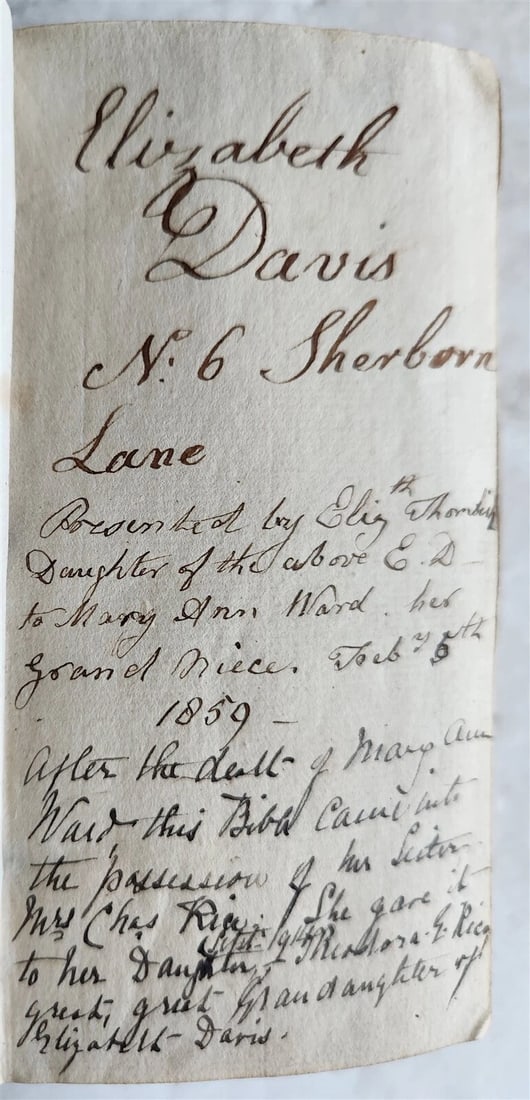 Elizabeth
Davis
No. 6 Sherborn
Lane
Presented by Elizth
Daughter of the above E. D
to Mary Ann Ward her
Grand Niece. Feby 8th
1859
After the death of Mary Ann
Ward, this Bible came into
the possession of her Sister
Mrs Chas Rice. She gave it
to her Daughter, Theodora G. Rice
great, great Grandaughter of
Elizabeth Davis.